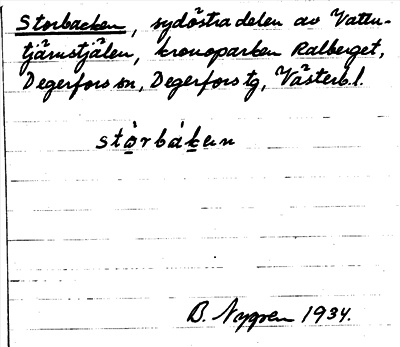 Storbacken, sydöstra delen av Vatten-
tjärnstjälen, kronoparken Kalberget,
Degerfors sn, Degerfors tg, Västerb.l.
stòrbàken
B. Nygren 1934.